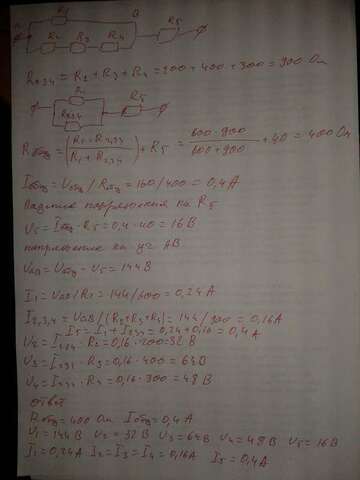 A R1 B R5
R2 R3 R4
R2,3,4 = R2 + R3 + R4 = 200 + 400 + 300 = 900 Ом
R1 R5
R2,3,4
Rобщ = (R1 * R2,3,4 / R1 + R2,3,4) + R5 = 600 · 900 / 600 + 900 + 40 = 400 Ом
Iобщ = Uобщ / Rобщ = 160/400 = 0,4 А
Падение напряжения на R5
U5 = Iобщ · R5 = 0,4 · 40 = 16 В
напряжение на уч АВ
UAB = Uобщ - U5 = 144 В
I1 = UAB/R1 = 144/600 = 0,24 А
I2,3,4 = UAB / (R2 + R3 + R4) = 144/900 = 0,16 А
I5 = I1 + I2,3,4 = 0,24 + 0,16 = 0,4 А
U2 = I2,3,4 · R2 = 0,16 · 200 = 32 В
U3 = I2,3,4 · R3 = 0,16 · 400 = 64 В
U4 = I2,3,4 · R4 = 0,16 · 300 = 48 В
ответ
Rобщ = 400 Ом Iобщ = 0,4 А
U1 = 144 В U2 = 32 В U3 = 64 В U4 = 48 В U5 = 16 В
I1 = 0,24 А I2 = I3 = I4 = 0,16 А I5 = 0,4 А